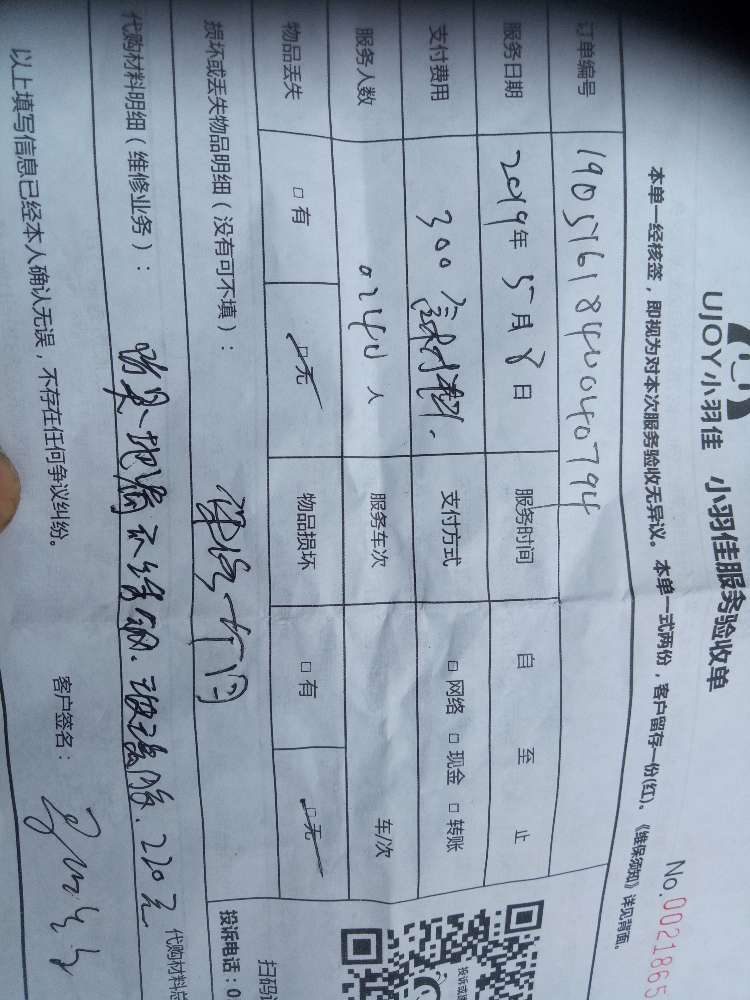 UJOY小羽佳 小羽佳服务验收单
No.0021865
本单一经核签，即视为对本次服务验收无异议。本单一式两份，客户留存一份(红)。《维保须知》详见背面。
订单编号 1905161840040794
服务日期 2019年5月8日 服务时间 自 至 止
支付费用 300 支付方式 □网络 □现金 □转账
服务人数 人 服务车次 车/次
物品丢失 □有 □无 物品损坏 □有 □无
损坏或丢失物品明细（没有可不填）：
代购材料明细（维修业务）： 地漏不锈钢.玻璃胶.220元
代购材料总
以上填写信息已经本人确认无误，不存在任何争议纠纷。 客户签名：
扫码
投诉电话：0